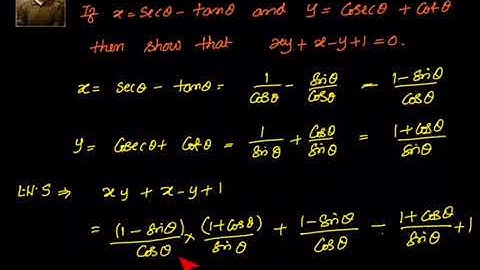 If x = Secθ - tanθ and y = Cosecθ + Cotθ
then show that xy + x - y + 1 = 0.
x = secθ - tanθ = 1/Cosθ - Sinθ/Cosθ = 1 - Sinθ/Cosθ
y = Cosecθ + Cotθ = 1/Sinθ + Cosθ/Sinθ = 1 + Cosθ/Sinθ
L.H.S ⇒ xy + x - y + 1
= (1 - Sinθ)/Cosθ × (1 + Cosθ)/Sinθ + 1 - Sinθ/Cosθ - 1 + Cosθ/Sinθ + 1